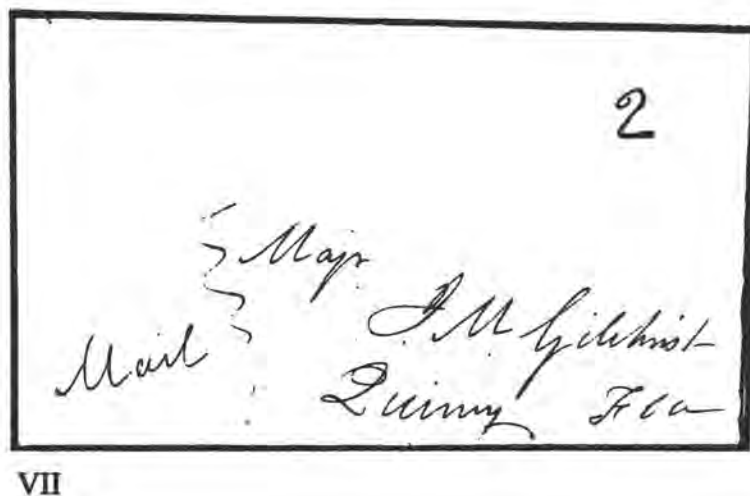 2
Majr
J M Gilchrist
Mail
Quincy Fla
VII